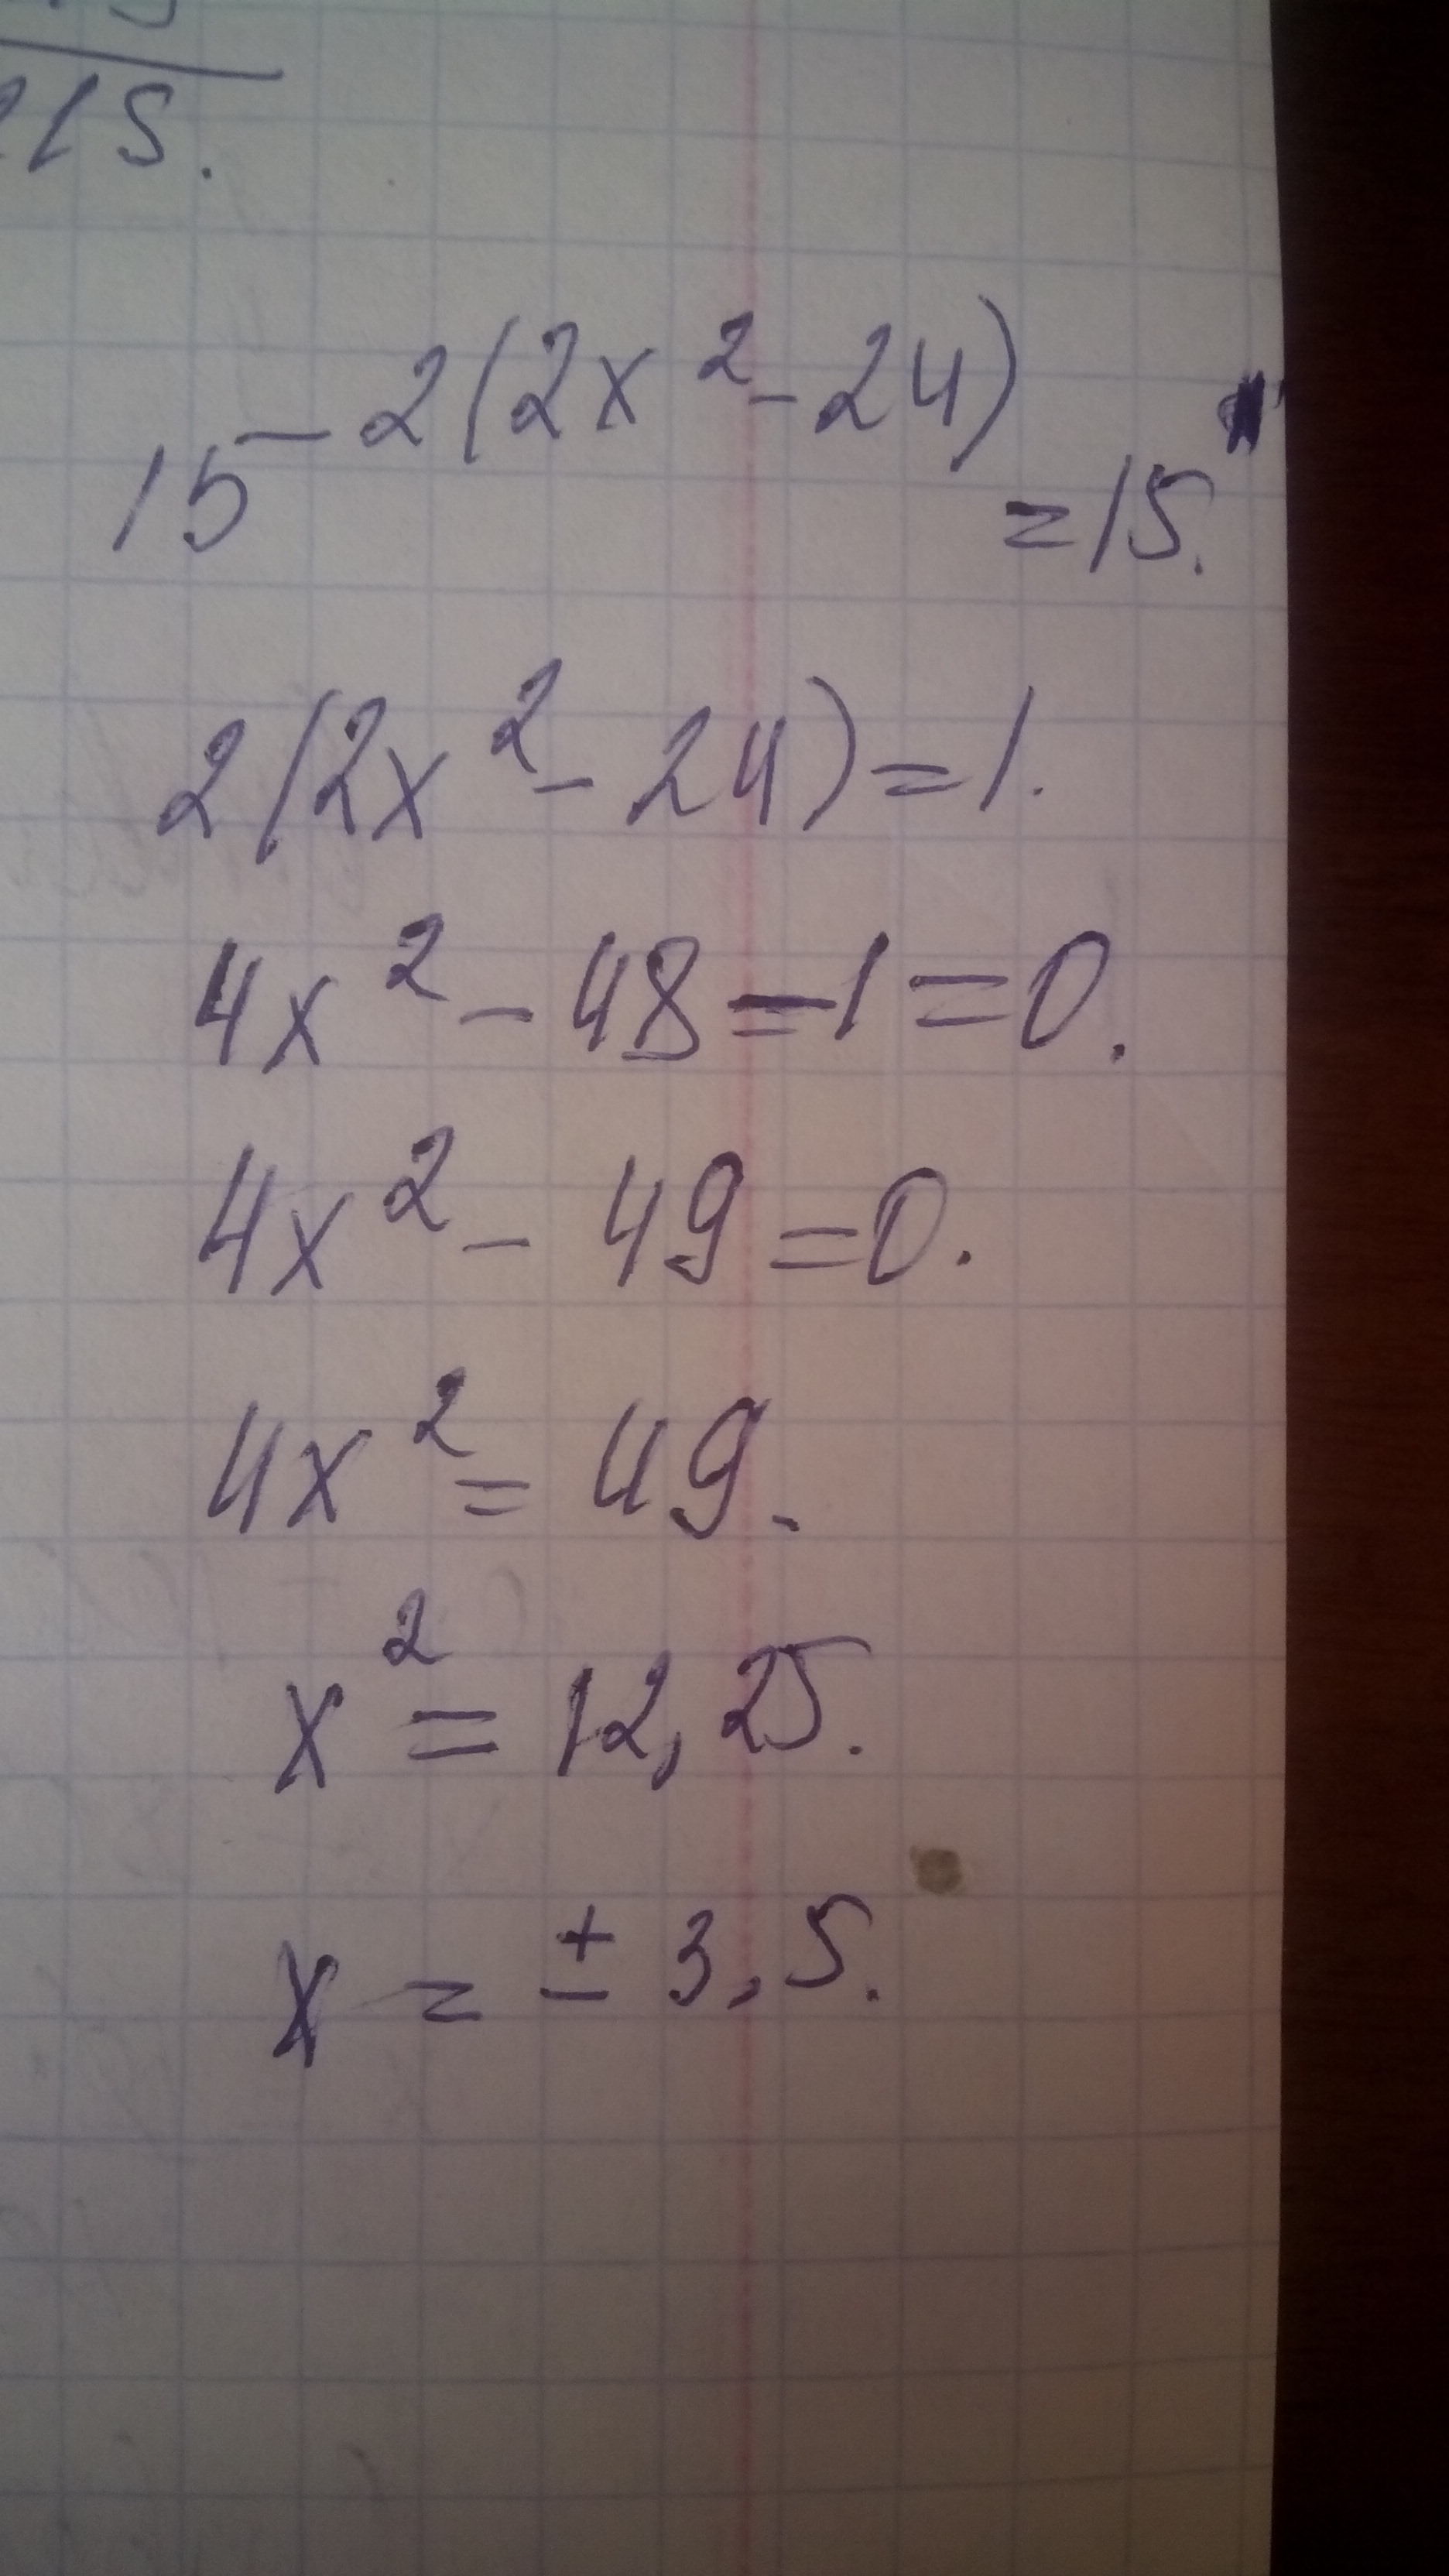 215.
15^-2(2x²-24) =15.
2(2x²-24)=1.
4x²-48-1=0.
4x²-49=0.
4x²=49.
x²=12,25.
x=±3,5.